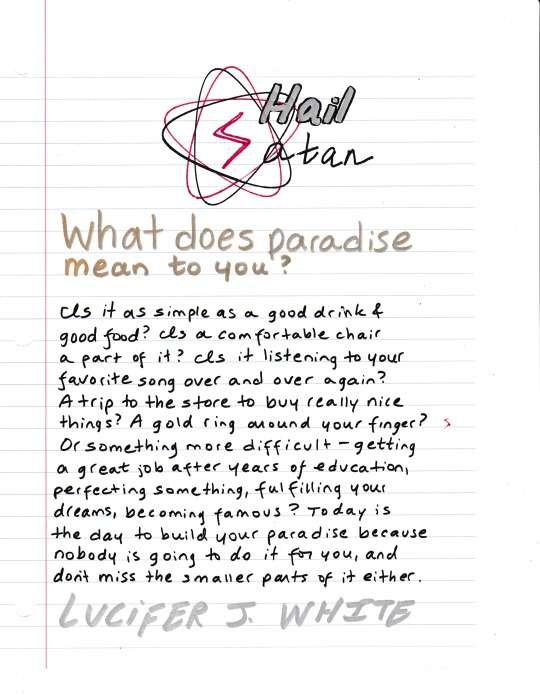 Hail
Satan
What does paradise
mean to you?
Is it as simple as a good drink &
good food? Is a comfortable chair
a part of it? Is it listening to your
favorite song over and over again?
A trip to the store to buy really nice
things? A gold ring around your finger?
Or something more difficult – getting
a great job after years of education,
perfecting something, fulfilling your
dreams, becoming famous? Today is
the day to build your paradise because
nobody is going to do it for you, and
don't miss the smaller parts of it either.
LUCiFER J. WHITE